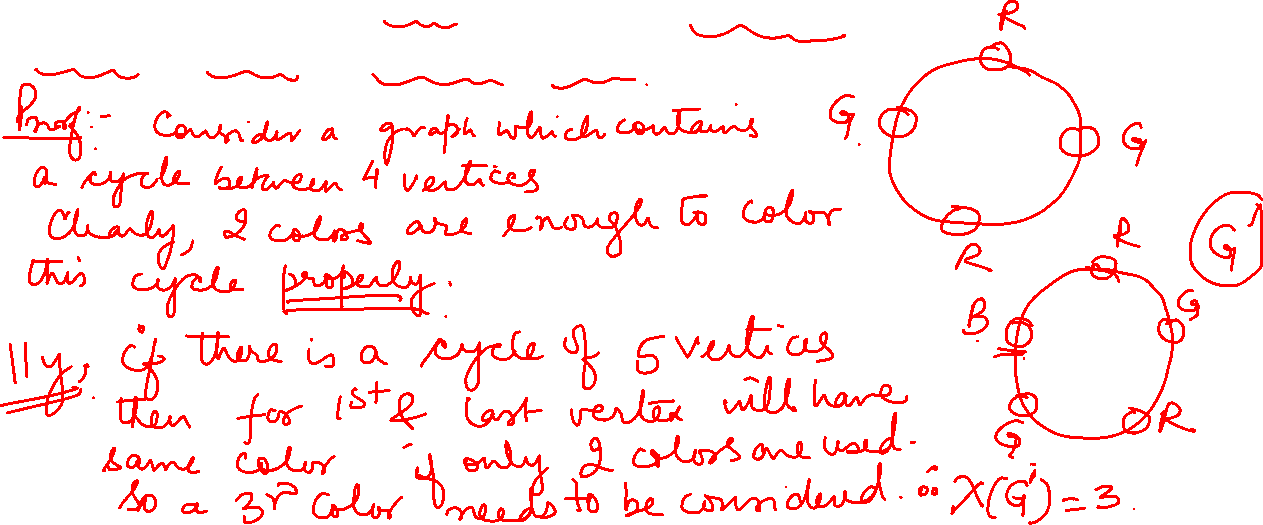 R
G
G
R
Proof:- Consider a graph which contains
a cycle between 4 vertices
Clearly, 2 colors are enough to color
this cycle properly.
R
G'
B
G
G
R
||ly, if there is a cycle of 5 vertices
then for 1st & last vertex will have
same color if only 2 colors are used.
So a 3rd color needs to be considered. ∴ χ(G') = 3.